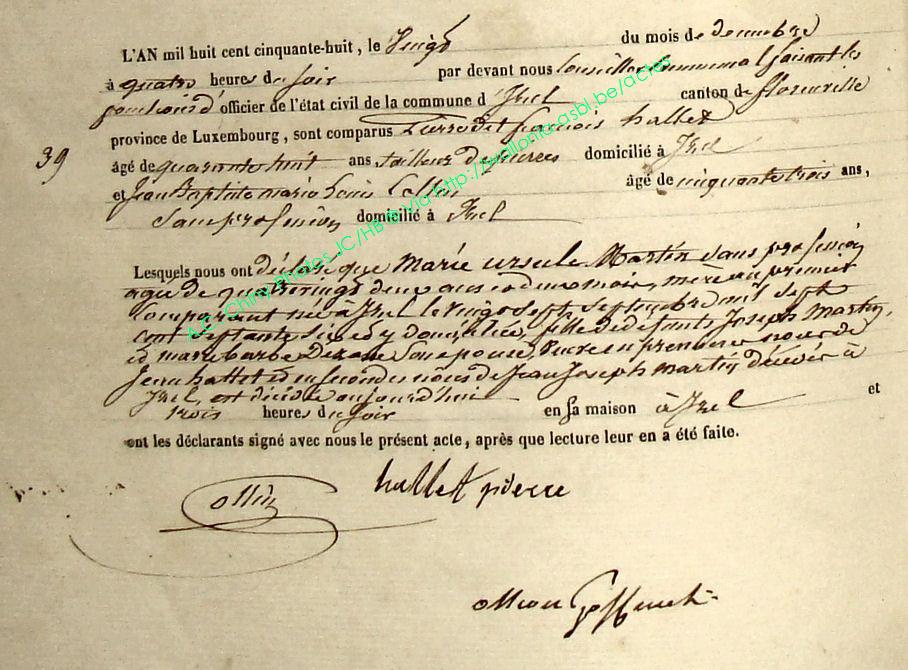 L'AN mil huit cent cinquante-huit, le Vingt du mois de decembre
à quatre heures du soir par devant nous Conseiller Communal faisant les
fonctions d'officier de l'état civil de la commune d'Izel canton de florenville
province de Luxembourg, sont comparus Pierre dit françois hallet
39
âgé de quarante huit ans, tailleur de pierres domicilié à Izel
et Jean Baptiste marie Louis Collin âgé de cinquante trois ans,
Sans profession domicilié à Izel
Lesquels nous ont déclaré que Marie ursule Martin sans profession
agée de quatrevingt deux ans et deux mois, mère au premier
Comparant née à Izel le vingt sept septembre mil sept
cent septante six et y domiciliée, fille de défunts Joseph Martin,
et marie barbe épouse, veuve en premier noces de
Jean hallet et en secondes noces de Jean Joseph martin décédé à
Izel, est décédée aujourd'hui
trois heures du soir en sa maison à Izel et
ont les déclarants signé avec nous le présent acte, après que lecture leur en a été faite.
hallet pierre
A.C. Chiny Photos JC/HB © via http://wallonia-asbl.be/actes